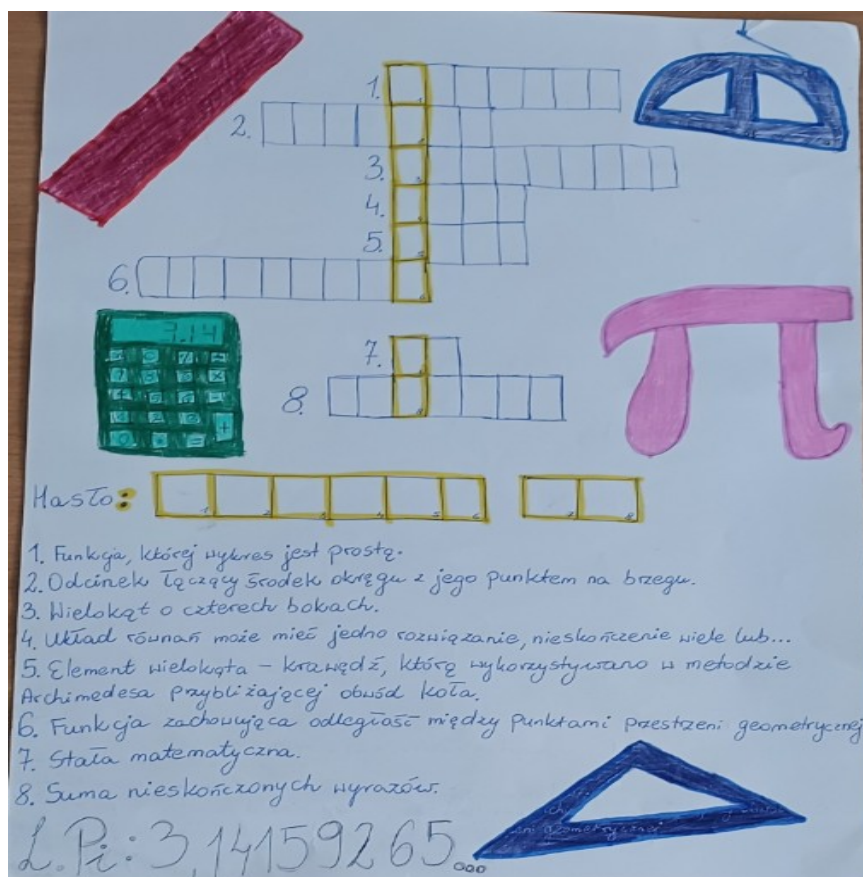 1.
2.
3.
4.
5.
6.
3.14
7.
8.
Hasło:
1. Funkcja, której wykres jest prostą.
2. Odcinek łączący środek okręgu z jego punktem na brzegu.
3. Wielokąt o czterech bokach.
4. Układ równań może mieć jedno rozwiązanie, nieskończenie wiele lub...
5. Element wielokąta – krawędź, którą wykorzystywano w metodzie
Archimedesa przybliżającej obwód koła.
6. Funkcja zachowująca odległość między punktami przestrzeni geometrycznej
7. Stała matematyczna.
8. Suma nieskończonych wyrazów.
L.Pi: 3,14159265...